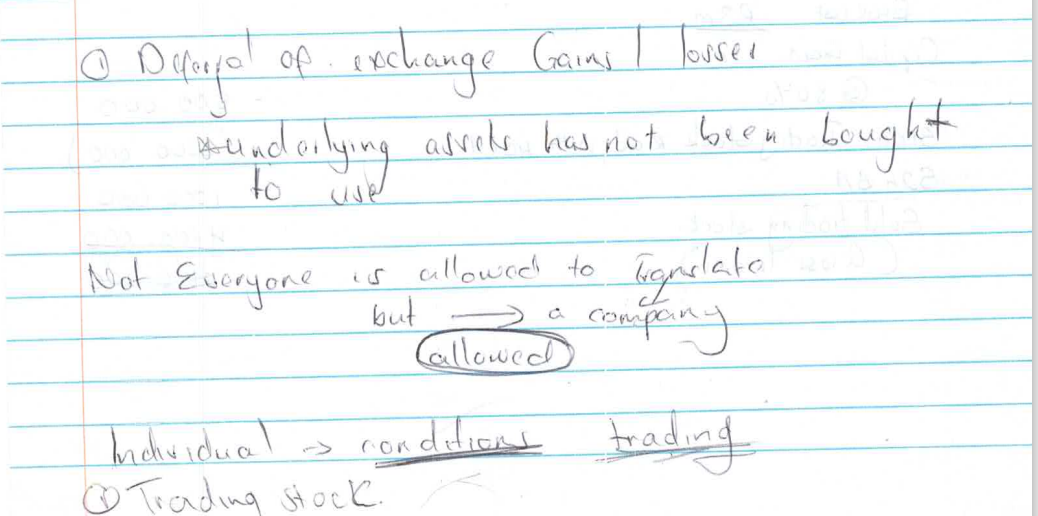 ① Deferral of exchange Gains / losses
* underlying assets has not been bought
to use
Not Everyone is allowed to Translate
but → a company
allowed
Individual → conditions trading
① Trading stock.